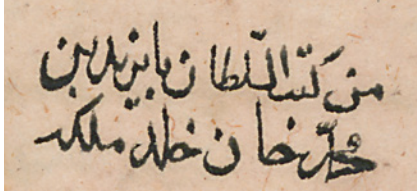 من كتب السلطان بايزيد بن
محمد خان خلد ملكه